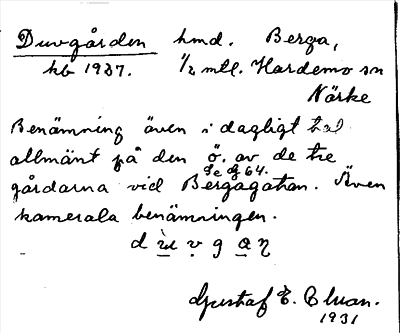 Duvgården hmd. Berga,
hb 1937. 1/2 mtl. Hardemo sn
Närke
Benämning även i dagligt tal
allmänt på den ö. av de tre
Se G 64.
gårdarna vid Bergagatan. Även
kamerala benämningen.
d ù v g a η
Gustaf E. Eluan.
1931